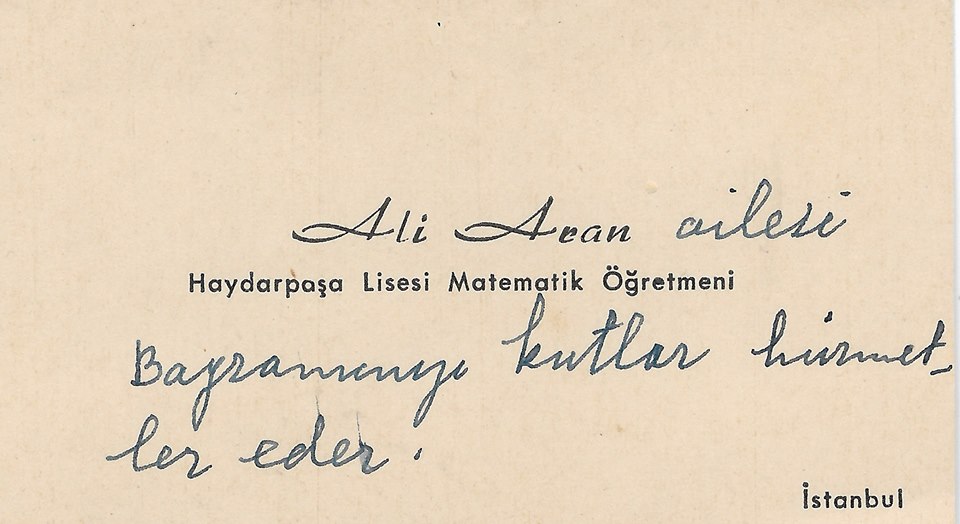 Ali Aran ailesi
Haydarpaşa Lisesi Matematik Öğretmeni
Bayramınızı kutlar hürmet-
ler eder.
İstanbul